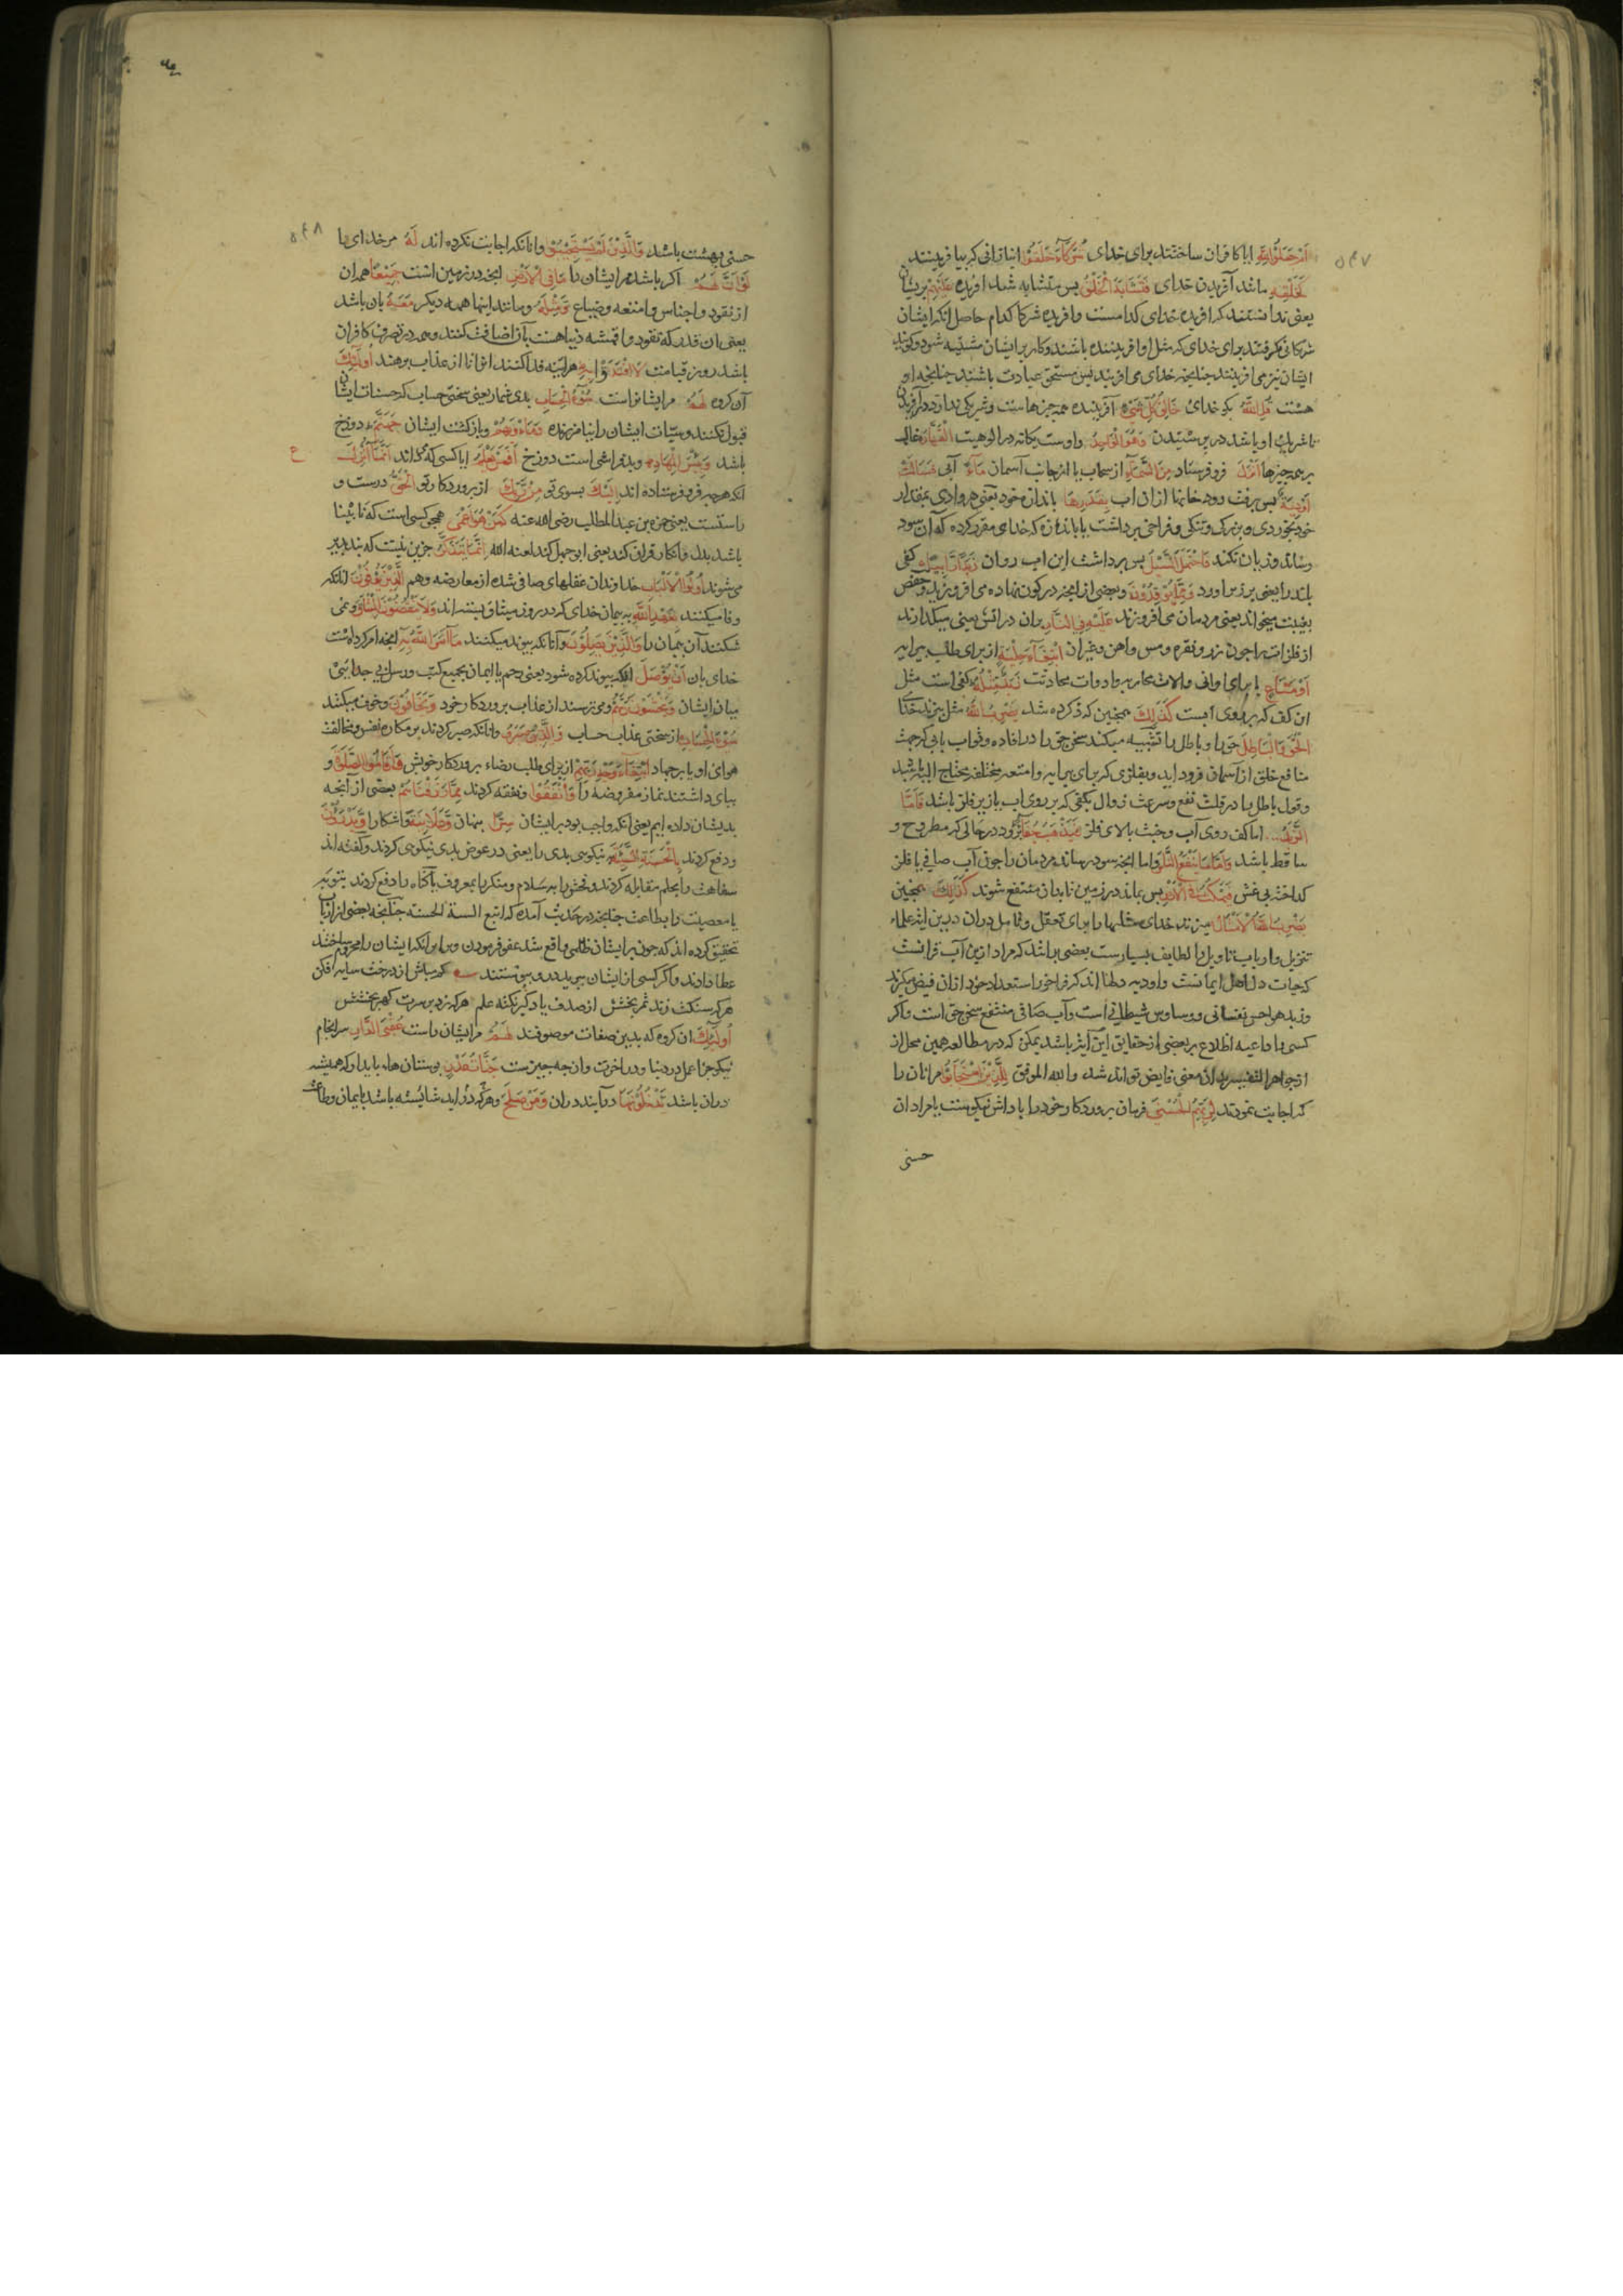 ۵۴۷
اَمْ جَعَلُوا لِلّٰهِ ایا کافران ساختند برای خدای شُرَكَآءَ خَلَقُوْا انبازانی که بیافریدند
كَخَلْقِهٖ مانند آفریدن خدای فَتَشَابَهَ الْخَلْقُ پس متشابه شد افریده عَلَيْهِمْ بریشان
یعنی ندانستند که افریده خدای کدامست و افریده شرکا کدام حاصل انکه ایشان
شرکا نکرفتند برای خدای که مثل او افریننده باشند و کار برایشان مشتبه شود و کویند
ایشان نیز می افرینند چنانچه خدای می افریند پس مستحق عبادت باشند چنانچه او
هست قُلِ اللّٰهُ بکو خدای خَالِقُ كُلِّ شَيْءٍ آفریننده همه چیزهاست و شریکی ندارد در آفریدن
تا شریک او باشد در پرستیدن وَهُوَ الْوَاحِدُ و اوست یکانه در الوهیت الْقَهَّارُ غالب
بر همه چیزها اَنْزَلَ فرو فرستاد مِنَ السَّمَآءِ از سحاب یا از جانب آسمان مَآءً آبی فَسَالَتْ
اَوْدِيَةٌ پس برفت رودخانها ازان اب بِقَدَرِهَا باندازه خود یعنی هر وادی بمقدار
خود بخوردی و بزرکی و تنکی و فراخی برداشت یا باندازه که خدای مقرر کرده که آن سود
رساند و زیان نکند فَاحْتَمَلَ السَّيْلُ پس برداشت این اب روان زَبَدًا رَّابِيًا کفی
بلند را یعنی بر زبر اورد وَمِمَّا يُوْقِدُوْنَ و بعضی از انچه در کوره نهاده می افروزند
بغیبت میخواند یعنی مردمان می افروزند عَلَيْهِ فِي النَّارِ بران در اتش یعنی میکدازند
از فلزات را چون زر و نقره و مس و اهن و غیران ابْتِغَآءَ حِلْيَةٍ از برای طلب پیرایه
اَوْ مَتَاعٍ یا برای اوانی و الات محاربه و ادوات محادثت زَبَدٌ مِّثْلُهٗ کفی است مثل
ان کف که بر روی ابست كَذٰلِكَ همچنین که ذکر کرده شد يَضْرِبُ اللّٰهُ مثل میزند خدای
الْحَقَّ وَالْبَاطِلَ حق را و باطل را تشبیه میکند سخن حق را در افاده و ثواب بابی که جهت
منافع خلق از آسمان فرود اید و بفلزی که برای پیرایه و امتعه مختلفه محتاج الیه باشد
و قول باطل را در قلت نفع و سرعت زوال بکفی که بر روی اب یا زبر فلز باشد فَاَمَّا
الزَّبَدُ اما کف روی آب و خبث بالای فلز فَيَذْهَبُ جُفَآءً برود در حالی که مطروح و
ساقط باشد وَاَمَّا مَا يَنْفَعُ النَّاسَ و اما انچه سود رساند مردمان را چون آب صافی یا فلز
کداخته بی غش فَيَمْكُثُ فِي الْاَرْضِ پس بماند در زمین تا بدان منتفع شوند كَذٰلِكَ همچنین
يَضْرِبُ اللّٰهُ الْاَمْثَالَ میزند خدای مثلها را برای تعقل و تامل دران درین ایه علماء
تنزیل و ارباب تاویل را لطایف بسیارست بعضی برانند که مراد ازین آب قرانست
که حیات دل اهل ایمانست و اودیه دلها اند که فراخور استعداد خود ازان فیض میکیرند
و زبد هواجس نفسانی و وساوس شیطانی است و آب صافی منتفع سخن حق است و اکر
کسی را داعیه اطلاع بر بعضی از حقایق این آیه باشد یمکن که در مطالعه همین محل از
از جواهر التفسیر بدان معنی فایض تواند شد و الله الموفق لِلَّذِيْنَ اسْتَجَابُوْا مرانان را
که اجابت نمودند لِرَبِّهِمُ الْحُسْنٰى فرمان پروردکار خود را پاداش نیکوست یا مراد ان
حسنی
۵۴۸
حسنی بهشت باشد وَالَّذِيْنَ لَمْ يَسْتَجِيْبُوْا و انانکه اجابت نکرده اند لَهٗ مر خدای را
لَوْ اَنَّ لَهُمْ اکر باشد مر ایشان را مَّا فِي الْاَرْضِ انچه در زمین است جَمِيْعًا همه ان
از نقود و اجناس و امتعه و ضیاع وَّمِثْلَهٗ و مانند اینها همه دیکر مَعَهٗ بان باشد
یعنی ان قدر که نقود و اقمشه دنیا هست بآن اضافت کنند و همه در تصرف کافران
باشد روز قیامت لَافْتَدَوْا بِهٖ هراینه فدا کنند انرا تا از عذاب برهند اُولٰٓئِكَ
آن کروه لَهُمْ مر ایشانراست سُوْٓءُ الْحِسَابِ بدی شمار یعنی سختی حساب که حسنات ایشان
قبول نکنند و سیّات ایشان را نیامرزند وَمَاْوٰىهُمْ و بازکشت ایشان جَهَنَّمُ دوزخ
باشد وَبِئْسَ الْمِهَادُ و بد فراشی است دوزخ اَفَمَنْ يَّعْلَمُ ایا کسی که داند اَنَّمَآ اُنْزِلَ ع
انکه هرچه فرو فرستاده اند اِلَيْكَ بسوی تو مِنْ رَّبِّكَ از پروردکار تو الْحَقُّ درست و
راستست یعنی حمزه بن عبدالمطلب رضی الله عنه كَمَنْ هُوَ اَعْمٰى همچو کسی است که نابینا
باشد بدل و انکار قران کند یعنی ابوجهل کند لعنه الله اِنَّمَا يَتَذَكَّرُ جزین نیست که پندپذیر
می شوند اُولُوا الْاَلْبَابِ خداوندان عقلهای صافی شده از معارضه وهم الَّذِيْنَ يُوْفُوْنَ انانکه
وفا میکنند بِعَهْدِ اللّٰهِ به پیمان خدای که در روز میثاق بسته اند وَلَا يَنْقُضُوْنَ الْمِيْثَاقَ و نمی
شکنند آن پیمان را وَالَّذِيْنَ يَصِلُوْنَ و آنانکه پیوند میکنند مَآ اَمَرَ اللّٰهُ بِهٖ انچه امر کرده است
خدای بان اَنْ يُّوْصَلَ انکه پیوند کرده شود یعنی رحم یا ایمان بجمیع کتب و رسل بی جدایی
میان ایشان وَيَخْشَوْنَ رَبَّهُمْ و می ترسند از عذاب پروردکار خود وَيَخَافُوْنَ و خوف میکنند
سُوْٓءَ الْحِسَابِ از سختی عذاب حساب وَالَّذِيْنَ صَبَرُوا و انانکه صبر کردند بر مکاره نفس و مخالفت
هوای او یا بر جهاد ابْتِغَآءَ وَجْهِ رَبِّهِمْ از برای طلب رضاء پروردکار خویش وَاَقَامُوا الصَّلٰوةَ و
بپای داشتند نماز مفروضه را وَاَنْفَقُوْا و نفقه کردند مِمَّا رَزَقْنٰهُمْ بعضی از آنچه
بدیشان داده ایم یعنی انکه واجب بود بر ایشان سِرًّا پنهان وَّعَلَانِيَةً و اشکارا وَّيَدْرَءُوْنَ
و دفع کردند بِالْحَسَنَةِ السَّيِّئَةَ بنیکویی بدی را یعنی در عوض بدی نیکویی کردند و کفته اند
سفاهت را بحلم مقابله کردند و فحش را به سلام و منکر را بمعروف یا کناه را دفع کردند بتوبه
یا معصیت را بطاعت چنانچه در حدیث آمده که اتبع السیئة الحسنه چنانچه بعضی از ارباب
تحقیق کرده اند که چون بر ایشان ظلمی واقع شد عفو فرمودن و برانکه ایشان را محروم ساختند
عطا دادند و اکر کسی از ایشان ببرید درو پیوستند کم مباش از درخت سایه افکن
هرکه سنکت زند ثمر بخشش از صدف یاد کیر نکته علم هرکه برد سرت کهر بخشش
اُولٰٓئِكَ ان کروه که بدین صفات موصوفند لَهُمْ مر ایشان راست عُقْبَى الدَّارِ سرانجام
نیکو جزا عمل در دنیا و در اخرت و ان چه چیزست جَنّٰتُ عَدْنٍ بوستان هاء پاینده که همیشه
دران باشد يَّدْخُلُوْنَهَا درآیند دران وَمَنْ صَلَحَ و هرکه دراید شایسته باشد بایمان و طاعت